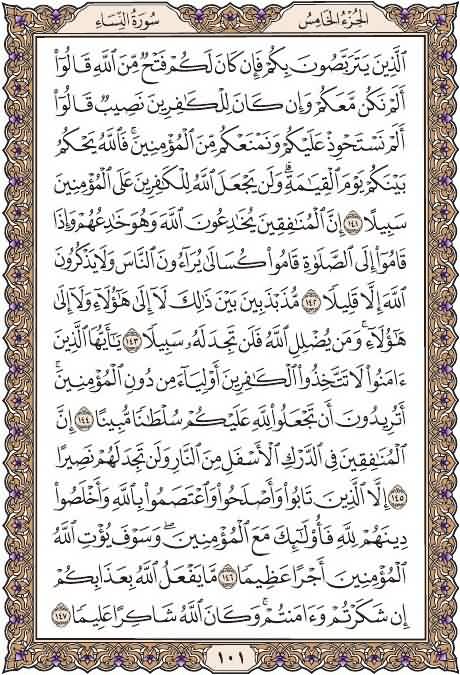 سُورَةُ النِّسَاءِ
الجُزْءُ الخَامِسُ
ٱلَّذِينَ يَتَرَبَّصُونَ بِكُمْ فَإِن كَانَ لَكُمْ فَتْحٌ مِّنَ ٱللَّهِ قَالُوٓا۟
أَلَمْ نَكُن مَّعَكُمْ وَإِن كَانَ لِلْكَـٰفِرِينَ نَصِيبٌ قَالُوٓا۟
أَلَمْ نَسْتَحْوِذْ عَلَيْكُمْ وَنَمْنَعْكُم مِّنَ ٱلْمُؤْمِنِينَ ۚ فَٱللَّهُ يَحْكُمُ
بَيْنَكُمْ يَوْمَ ٱلْقِيَـٰمَةِ ۗ وَلَن يَجْعَلَ ٱللَّهُ لِلْكَـٰفِرِينَ عَلَى ٱلْمُؤْمِنِينَ
سَبِيلًا ١٤١ إِنَّ ٱلْمُنَـٰفِقِينَ يُخَـٰدِعُونَ ٱللَّهَ وَهُوَ خَـٰدِعُهُمْ وَإِذَا
قَامُوٓا۟ إِلَى ٱلصَّلَوٰةِ قَامُوا۟ كُسَالَىٰ يُرَآءُونَ ٱلنَّاسَ وَلَا يَذْكُرُونَ
ٱللَّهَ إِلَّا قَلِيلًا ١٤٢ مُّذَبْذَبِينَ بَيْنَ ذَٰلِكَ لَآ إِلَىٰ هَـٰٓؤُلَآءِ وَلَآ إِلَىٰ
هَـٰٓؤُلَآءِ ۚ وَمَن يُضْلِلِ ٱللَّهُ فَلَن تَجِدَ لَهُۥ سَبِيلًا ١٤٣ يَـٰٓأَيُّهَا ٱلَّذِينَ
ءَامَنُوا۟ لَا تَتَّخِذُوا۟ ٱلْكَـٰفِرِينَ أَوْلِيَآءَ مِن دُونِ ٱلْمُؤْمِنِينَ ۚ
أَتُرِيدُونَ أَن تَجْعَلُوا۟ لِلَّهِ عَلَيْكُمْ سُلْطَـٰنًا مُّبِينًا ١٤٤ إِنَّ
ٱلْمُنَـٰفِقِينَ فِى ٱلدَّرْكِ ٱلْأَسْفَلِ مِنَ ٱلنَّارِ وَلَن تَجِدَ لَهُمْ نَصِيرًا
١٤٥ إِلَّا ٱلَّذِينَ تَابُوا۟ وَأَصْلَحُوا۟ وَٱعْتَصَمُوا۟ بِٱللَّهِ وَأَخْلَصُوا۟
دِينَهُمْ لِلَّهِ فَأُو۟لَـٰٓئِكَ مَعَ ٱلْمُؤْمِنِينَ ۖ وَسَوْفَ يُؤْتِ ٱللَّهُ
ٱلْمُؤْمِنِينَ أَجْرًا عَظِيمًا ١٤٦ مَّا يَفْعَلُ ٱللَّهُ بِعَذَابِكُمْ
إِن شَكَرْتُمْ وَءَامَنتُمْ ۚ وَكَانَ ٱللَّهُ شَاكِرًا عَلِيمًا ١٤٧
١٠١